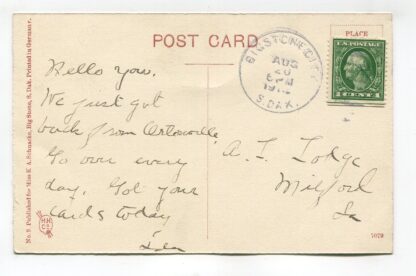 POST CARD
PLACE
BIGSTONE CITY
AUG
20
6 PM
S. DAK.
U.S. POSTAGE
1 CENT 1
Hello you.
We just got
back from Ortonville
Go over every
day. Got your
cards today
Ida
A. T. Lodge
Milford
Ia
No. 9 Published for Miss E. A. Schmacke, Big Stone, S. Dak. Printed in Germany.
7079